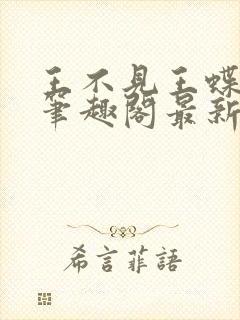 王不見王蝶
筆趣閣最新
希言菲語